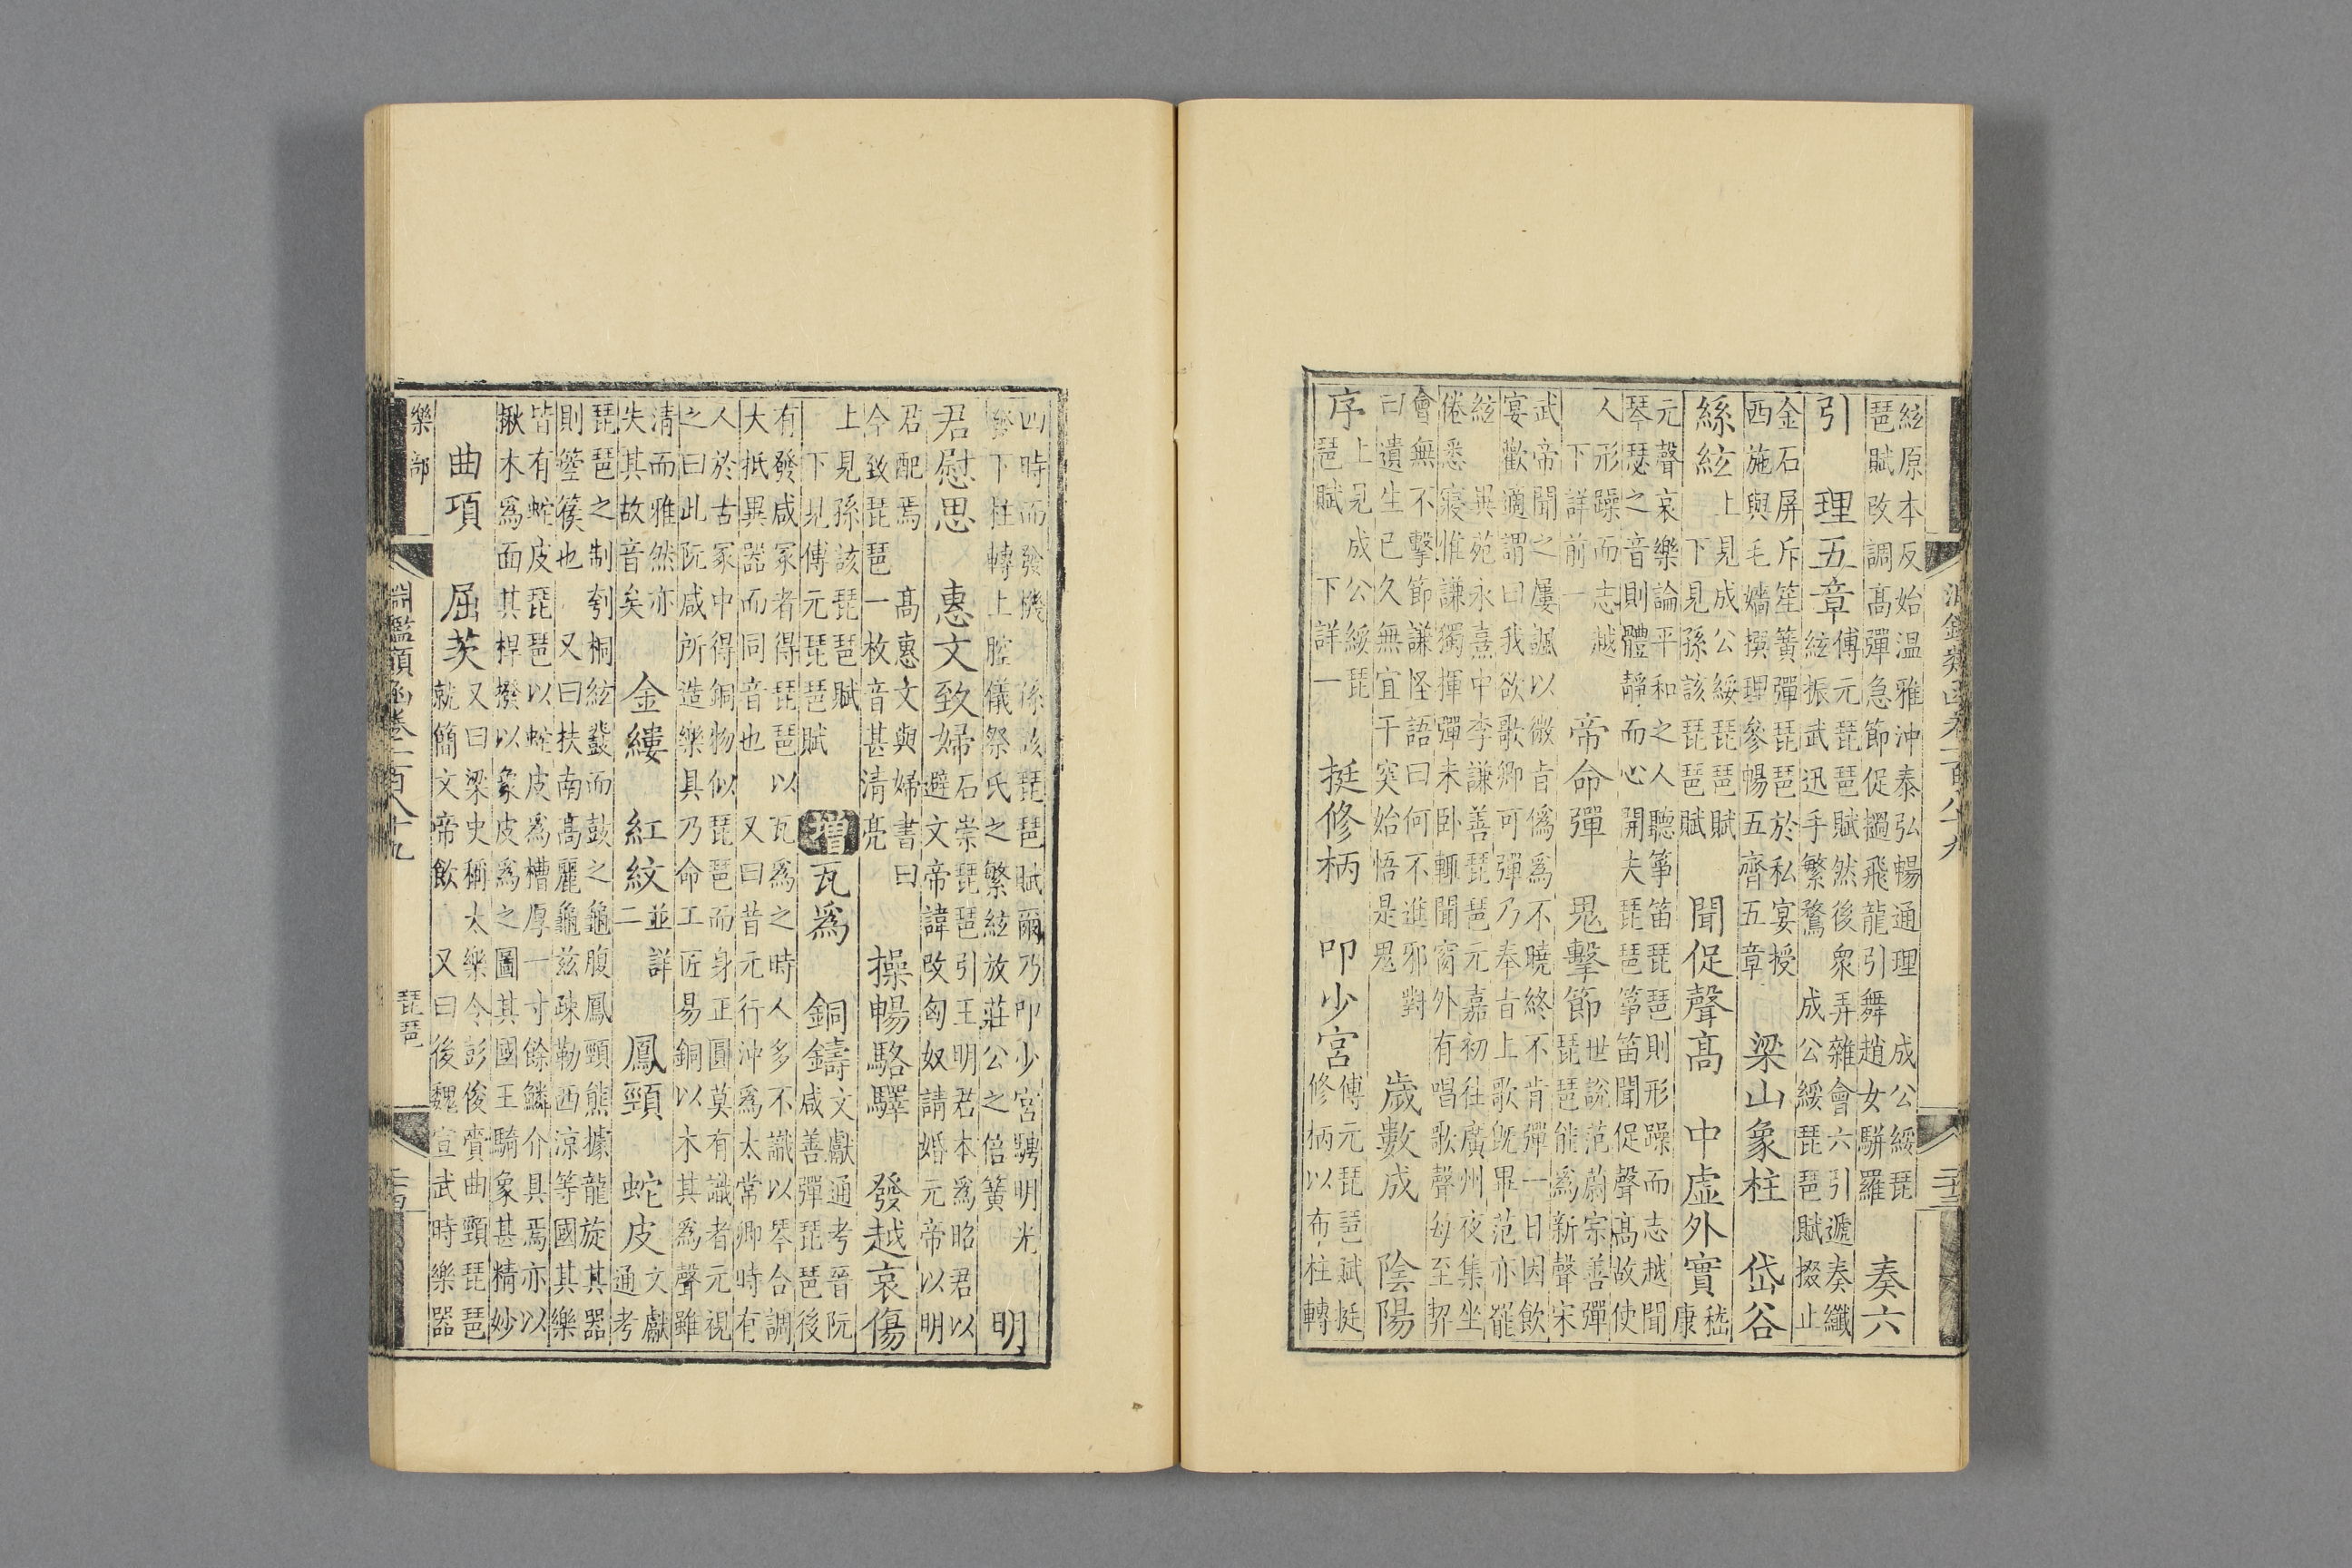 淵鑑類函卷一百八十九 二十三
絃原本反始温雅沖泰弘暢通理 成公綏琵
琶賦改調高彈急節促撾飛龍引舞趙女駢羅 奏六
引 理五章 傅元琵琶賦然後衆弄雜會六引遞奏纖
絃振武迅手繁騖 成公綏琵琶賦掇止
金石屏斥笙簧彈琵琶於私宴授
西施與毛嬙撰理參暢五齊五章 梁山象柱 岱谷
絲絃 上見成公綏琵琶賦
下見孫該琵琶賦 聞促聲高 中虛外實 嵇康
元聲哀樂論平和之人聽箏笛琵琶則形躁而志越聞
琴瑟之音則體靜而心開夫琵琶箏笛聞促聲高故使
人形躁而志越
下詳前一 帝命彈 鬼擊節 世説范蔚宗善彈
琵琶能爲新聲宋
武帝聞之屢諷以微旨僞爲不曉終不肯彈一日因飲
宴歡適謂曰我欲歌卿可彈乃奉旨上歌既畢范亦罷
絃 異苑永熹中李謙善琵琶元嘉初往廣州夜集坐
倦悉寢惟謙獨揮彈未卧輒聞窗外有唱歌聲每至契
會無不擊節謙怪語曰何不進邪對
曰遺生已久無宜干突始悟是鬼 歲數成 陰陽
序 上見成公綏琵
琶賦 下詳一 挺修柄 叩少宮 傅元琵琶賦挺
修柄以布柱轉
四時而發機 孫該琵琶賦爾乃叩少宮騁明光
發下柱轉上腔儀祭氏之繁絃放莊公之倍簧 明
君慰思 惠文致婦 石崇琵琶引王明君本爲昭君以
避文帝諱改匈奴請婚元帝以明
君配焉 高惠文與婦書曰
今致琵琶一枚音甚清亮 操暢駱驛 發越哀傷
上見孫該琵琶賦
下見傅元琵琶賦 增 瓦爲 銅鑄 文獻通考晉阮
咸善彈琵琶後
有發咸冢者得琵琶以瓦爲之時人多不識以琴合調
大抵異器而同音也 又曰昔元行沖爲太常卿時有
人於古冢中得銅物似琵琶而身正圓莫有識者元視
之曰此阮咸所造樂具乃命工匠易銅以木其爲聲雖
清而雅然亦
失其故音矣 金縷 紅紋 並詳二 鳳頸 蛇皮 文獻
通考
琵琶之制刳桐絃蠶而鼓之龜腹鳳頸熊據龍旋其器
則箜篌也 又曰扶南高麗龜兹疎勒西涼等國其樂
皆有蛇皮琵琶以蛇皮爲槽厚一寸餘鱗介具焉亦以
楸木爲面其捍撥以象皮爲之圖其國王騎象甚精妙
曲項 屈茨 又曰梁史稱太樂令彭俊賫曲頸琵琶
就簡文帝飲 又曰後魏宣武時樂器
樂部
淵鑑類函卷一百八十九 琵琶 二十四